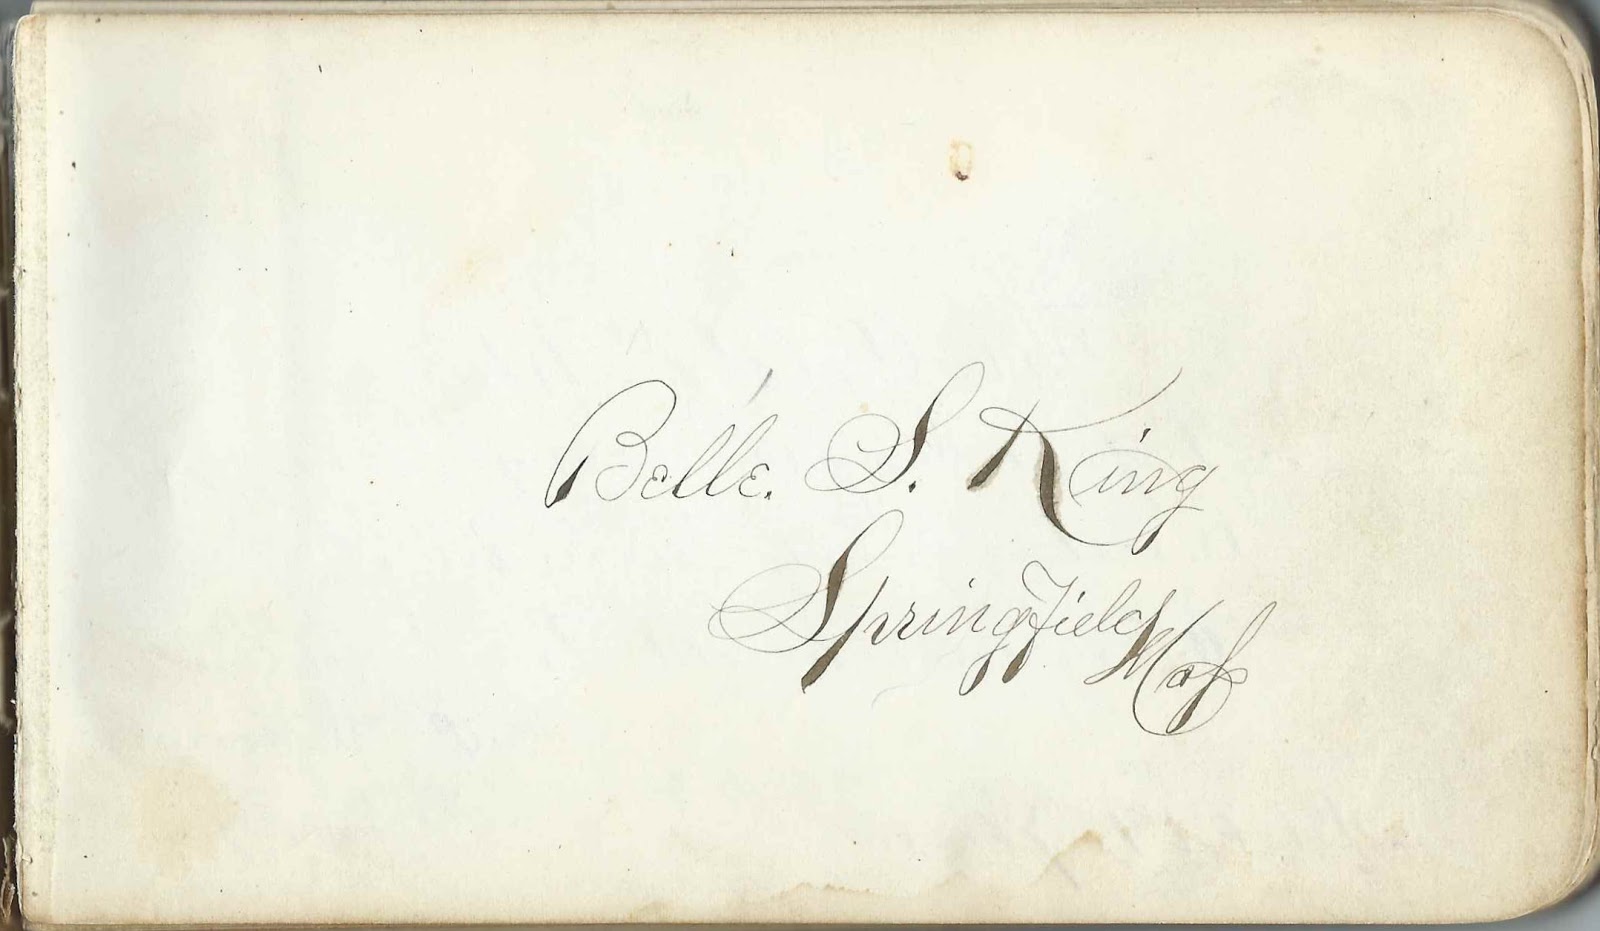 Belle. S. King
Springfield